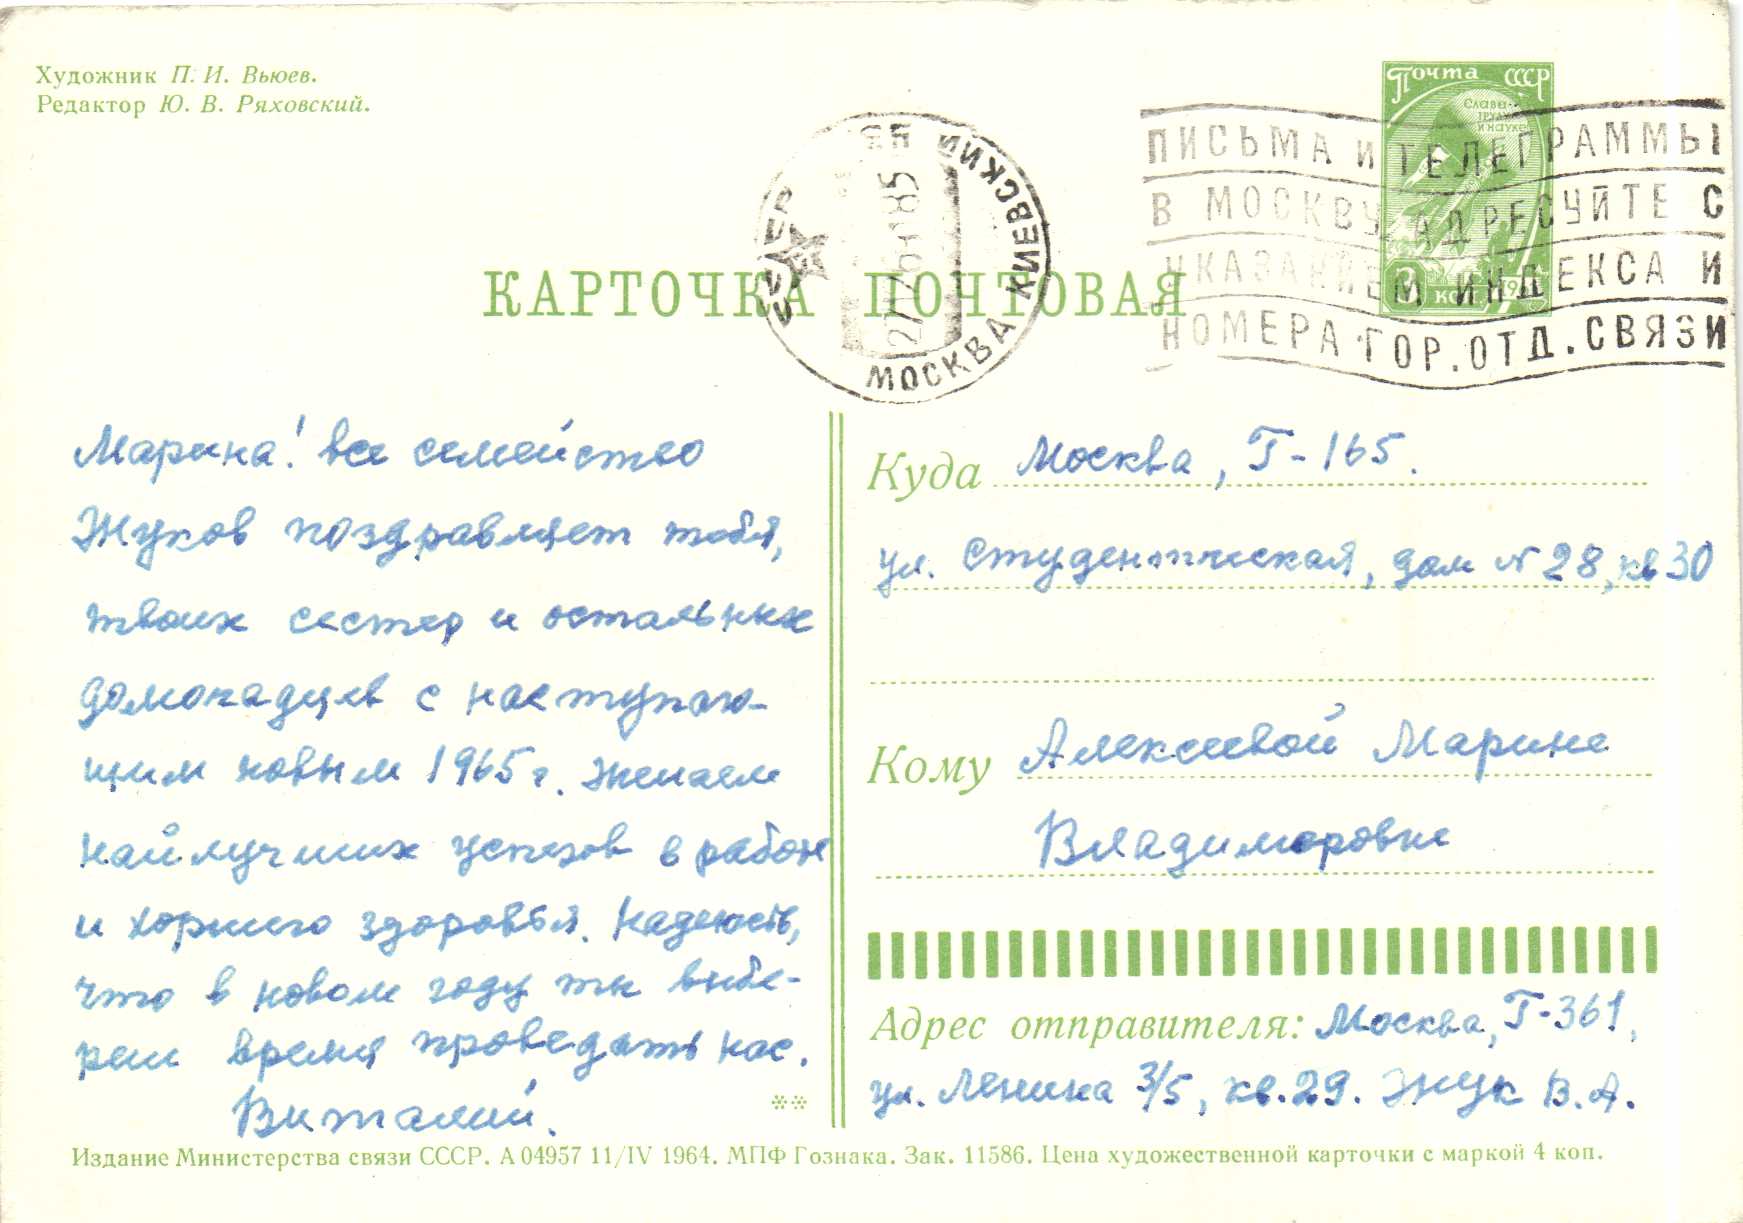 Художник П. И. Вьюев.
Редактор Ю. В. Ряховский.
Почта СССР
Слава
труду
и науке
3 коп.
СССР
МОСКВА КИЕВСКИЙ
ПИСЬМА И ТЕЛЕГРАММЫ
В МОСКВУ АДРЕСУЙТЕ С
УКАЗАНИЕМ ИНДЕКСА И
НОМЕРА ГОР.ОТД.СВЯЗИ
КАРТОЧКА ПОЧТОВАЯ
Марина! все семейство
Жуков поздравляет тебя,
твоих сестер и остальных
домочадцев с наступаю-
щим новым 1965 г. Желаем
наилучших успехов в работе
и хорошего здоровья. Надеюсь,
что в новом году ты выбе-
реш время проведать нас.
Виталий.
Куда Москва, Г-165.
ул. Студенческая, дом № 28, кв 30
Кому Алексеевой Марине
Владимировне
Адрес отправителя: Москва, Г-361,
ул. Ленина 3/5, кв. 29. Жук В.А.
Издание Министерства связи СССР. А 04957 11/IV 1964. МПФ Гознака. Зак. 11586. Цена художественной карточки с маркой 4 коп.